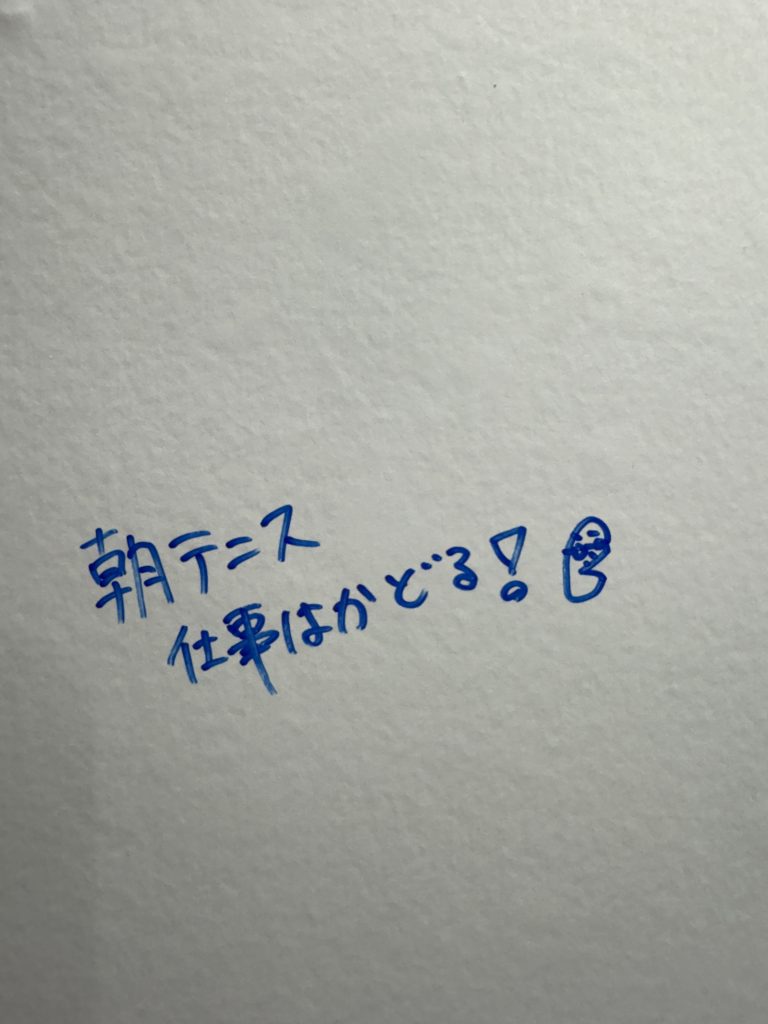 朝テニス
仕事はかどる!